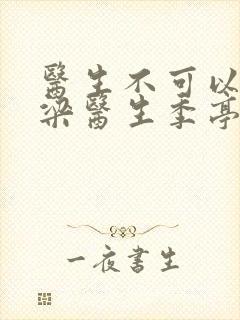 醫生不可以
梁醫生季亭
一夜書生